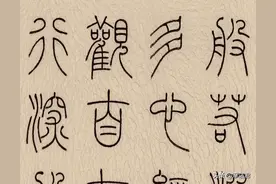 般若
多心經
觀自在
行深